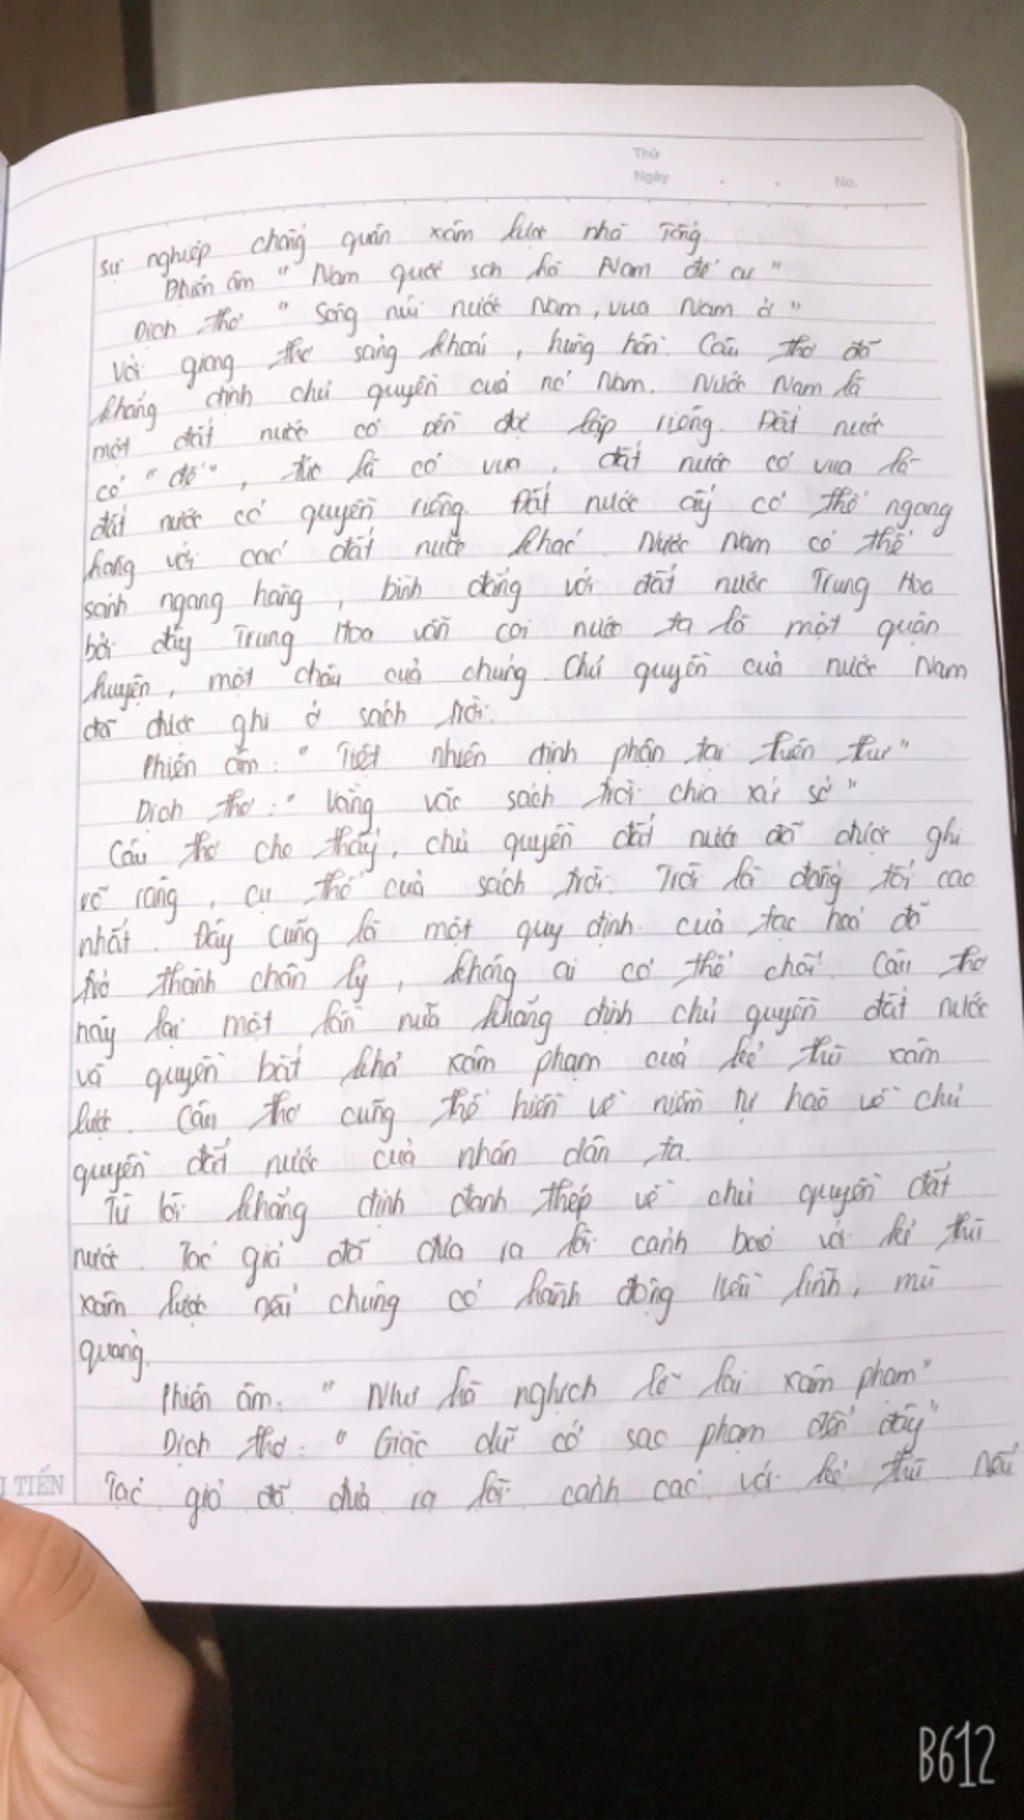 Thứ
Ngày . . No.
sự nghiệp chống quân xâm lược nhà Tống.
Phiên âm " Nam quốc sơn hà Nam đế cư "
Dịch thơ " Sông núi nước Nam, vua Nam ở "
Với giọng thơ sảng khoái, hùng hồn. Câu thơ đã
khẳng định chủ quyền của nc Nam. Nước Nam là
một đất nước có nền độc lập riêng. Đất nước
có " đế ", tức là có vua, đất nước có vua là
đất nước có quyền riêng. Đất nước ấy có thể ngang
hàng với các đất nước khác. Nước Nam có thể
sánh ngang hàng, bình đẳng với đất nước Trung Hoa
bởi đây Trung Hoa vẫn coi nước ta là một quận
huyện, một châu của chúng. Chủ quyền của nước Nam
đã được ghi ở sách trời.
Phiên âm : " Tiệt nhiên định phận tại thiên thư "
Dịch thơ : " Vằng vặc sách trời chia xứ sở "
Câu thơ cho thấy, chủ quyền đất nước đã được ghi
rõ ràng, cụ thể của sách trời. Trời là đấng tối cao
nhất. Đây cũng là một quy định của tạo hoá đã
trở thành chân lý, không ai có thể chối. Câu thơ
này lại một lần nữa khẳng định chủ quyền đất nước
và quyền bất khả xâm phạm của kẻ thù xâm
lược. Câu thơ cũng thể hiện về niềm tự hào về chủ
quyền đất nước của nhân dân ta.
Từ lời khẳng định đanh thép về chủ quyền đất
nước. Tác giả đã đưa ra lời cảnh báo với kẻ thù
xâm lược nếu chúng có hành động liều lĩnh, mù
quáng.
Phiên âm : " Như hà nghịch lỗ lai xâm phạm "
Dịch thơ : " Giặc dữ cớ sao phạm đến đây "
I TIẾN
Tác giả đã đưa ra lời cảnh cáo với kẻ thù nếu
B612